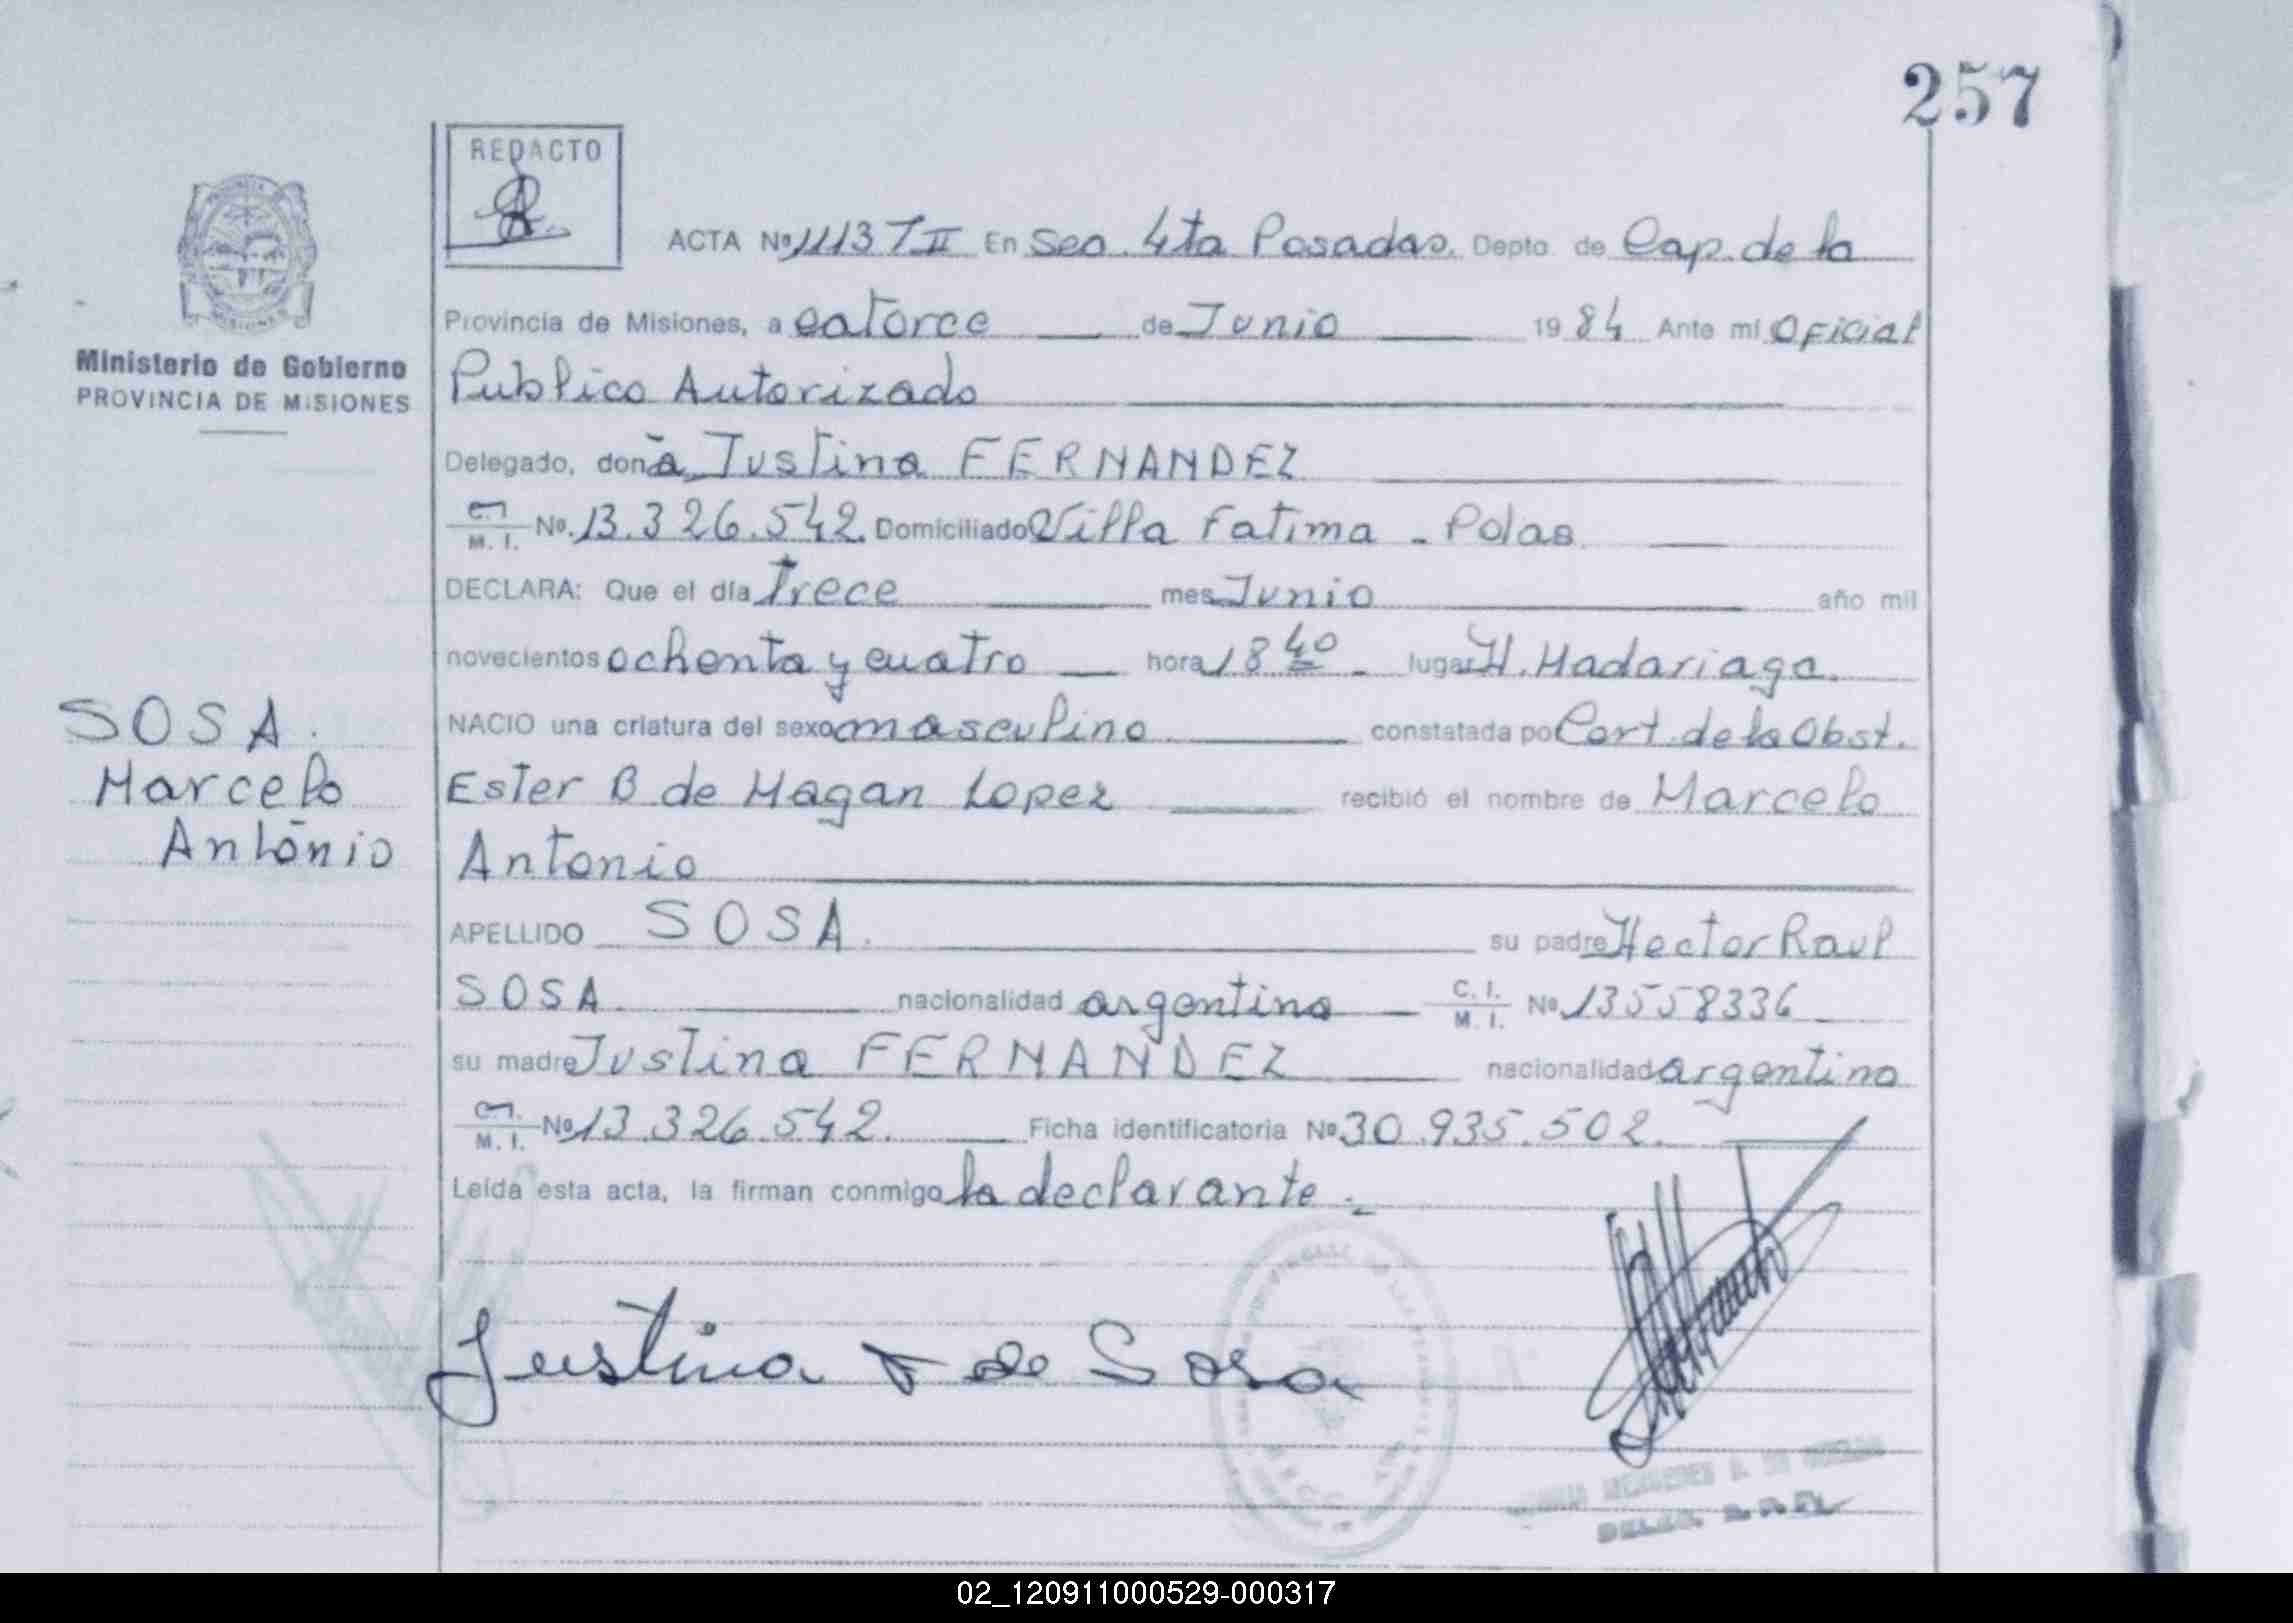 257
REDACTO
ACTA Nº 1113 T II En Sec. 4ta Posadas. Depto. de Cap. de la
Provincia de Misiones, a catorce de Junio 1984 Ante mí Oficial
Publico Autorizado
Ministerio de Gobierno
PROVINCIA DE MISIONES
Delegado, doña Justina FERNANDEZ
M. I. Nº. 13.326.542. Domiciliado Villa Fatima - Pdas.
DECLARA: Que el día Trece mes Junio año mil
novecientos ochenta y cuatro hora 18 40 - lugar H. Madariaga.
NACIO una criatura del sexo masculino constatada po Cert. de la Obst.
Ester B de Magan Lopez recibió el nombre de Marcelo
Antonio
SOSA.
Marcelo
Antonio
APELLIDO SOSA. su padre Hector Raul
SOSA. nacionalidad argentina C. I. M. I. Nº 13558336
su madre Justina FERNANDEZ nacionalidad argentina
M. I. Nº 13.326.542. Ficha identificatoria Nº 30.935.502.
Leída esta acta, la firman conmigo la declarante.-
Justina F de Sosa
02_120911000529-000317